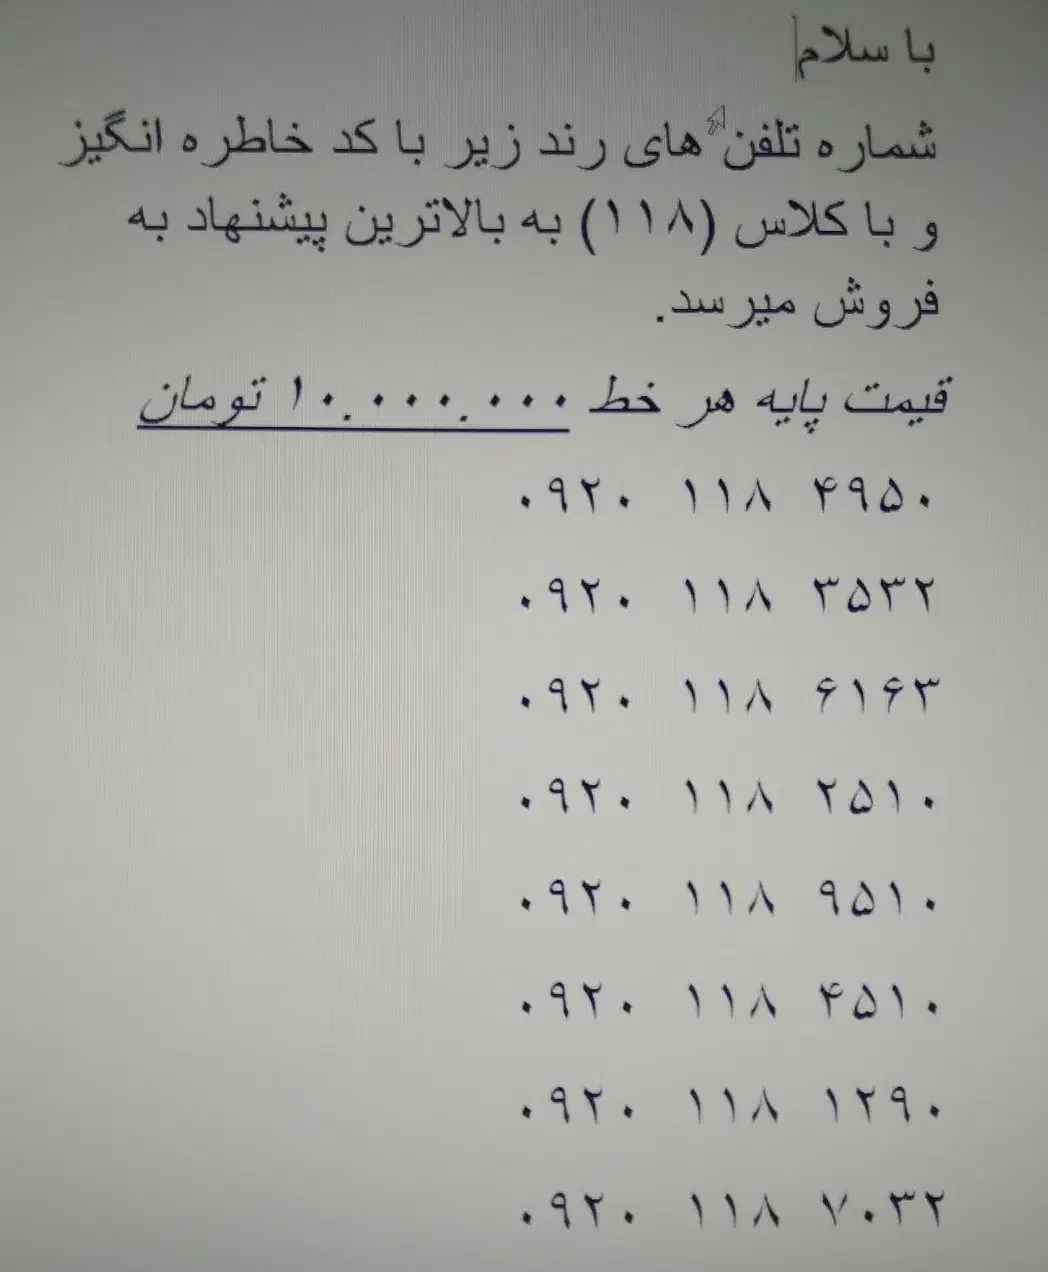 با سلام
شماره تلفن های رند زیر با کد خاطره انگیز
و با کلاس (۱۱۸) به بالاترین پیشنهاد به
فروش میرسد.
قیمت پایه هر خط ۱۰.۰۰۰.۰۰۰ تومان
۰۹۲۰ ۱۱۸ ۴۹۵۰
۰۹۲۰ ۱۱۸ ۳۵۳۲
۰۹۲۰ ۱۱۸ ۶۱۶۳
۰۹۲۰ ۱۱۸ ۲۵۱۰
۰۹۲۰ ۱۱۸ ۹۵۱۰
۰۹۲۰ ۱۱۸ ۴۵۱۰
۰۹۲۰ ۱۱۸ ۱۲۹۰
۰۹۲۰ ۱۱۸ ۷۰۳۲